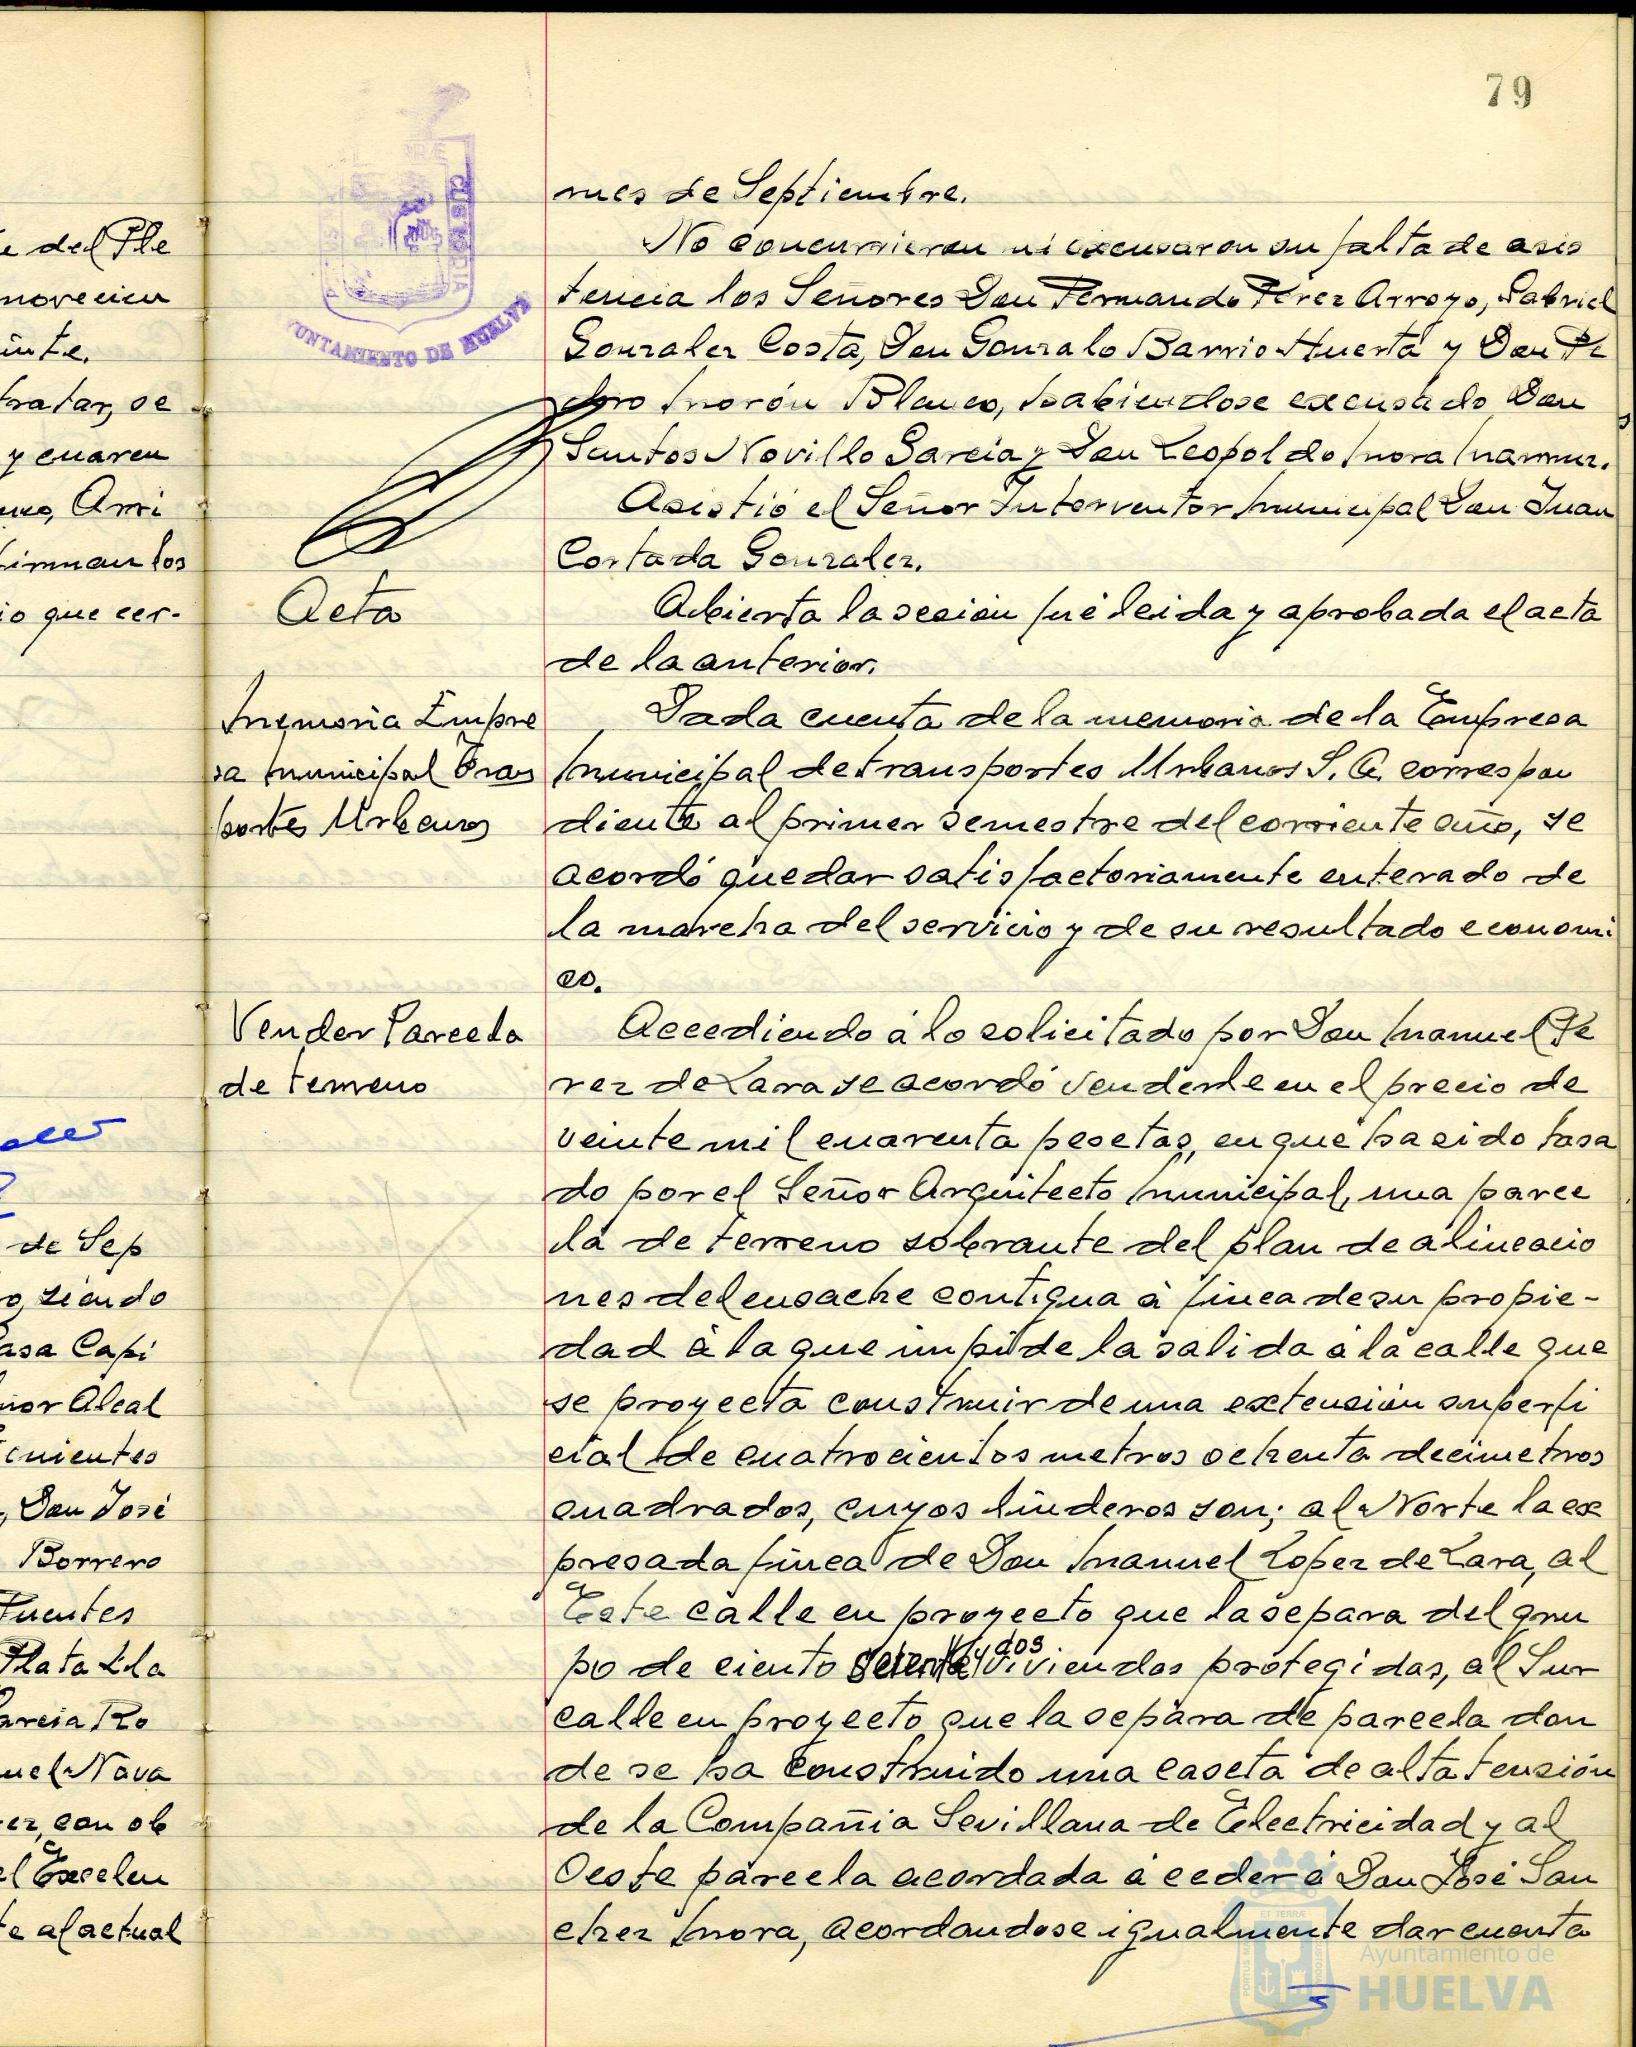 79
e del Ple
novecien
inte.
tratar, se
y cuaren
Arri
firman los
io que cer-
de Sep
o, siendo
asa Capi
ñor Alcal
enientes
, Don José
Borrero
Fuentes
Plata Lla
Garcia Ro
uel Nava
ez, con ob
el Excelen
te al actual
CUSTODIA
YUNTAMIENTO DE HUELVA
Acta
Memoria Empre
sa Municipal Trans
portes Urbanos
Vender Parcela
de terreno
mes de Septiembre.
No concurrieron ni excusaron su falta de asis
tencia los Señores Don Fernando Pérez Arroyo, Gabriel
Gonzalez Costa, Don Gonzalo Barrio Huerta y Don Pe
dro Morón Blanco, habiendose excusado Don
Santos Novillo Garcia y Don Leopoldo Mora
Asistió el Señor Interventor Municipal Don Juan
Cortada Gonzalez.
Abierta la sesión fué leida y aprobada el acta
de la anterior.
Dada cuenta de la memoria de la Empresa
Municipal de transportes Urbanos S. A. correspon
diente al primer semestre del corriente año, se
acordó quedar satisfactoriamente enterado de
la marcha del servicio y de su resultado economi
co.
Accediendo á lo solicitado por Don Manuel Pe
rez de Lara se acordó venderle en el precio de
veinte mil cuarenta pesetas, en que ha sido tasa
do por el Señor Arquitecto Municipal, una parce
la de terreno sobrante del plan de alineacio
nes del ensache contigua á finca de su propie-
dad á la que impide la salida á la calle que
se proyecta construir de una extensión superfi
cial de cuatrocientos metros ochenta decimetros
cuadrados, cuyos linderos son; al Norte la ex
presada finca de Don Manuel Lopez de Lara, al
Este calle en proyecto que la separa del gru
po de ciento setenta y dos viviendas protegidas, al Sur
calle en proyecto que la separa de parcela don
de se ha construido una caseta de alta tensión
de la Compañia Sevillana de Electricidad y al
Oeste parcela acordada á ceder á Don José San
chez Mora, acordandose igualmente dar cuenta
Ayuntamiento de
HUELVA